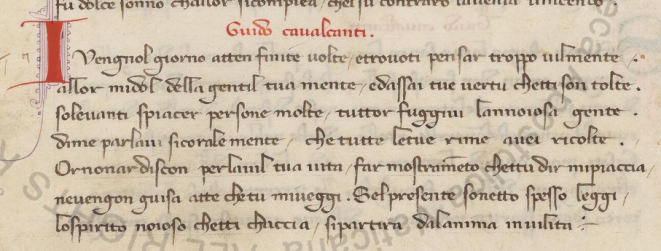 fu dolce sonno challor sicompiea, chel su contraro laveniα vincendo.
Guido cavalcanti.
I Vengnol giorno atten finite volte, etrovoti pensar troppo vilmente,
allor midol della gentil tua mente, edassai tue vertu chetti son tolte.
solevanti spiacer persone molte, tuttor fuggivi lannoiosa gente.
dime parlavi sicoralemente, che tutte letue rime avei ricolte.
Ornonardiscon perlavil tua vita, far mostramēto chettu dir mipiaccia,
nevengon guisa atte chetu miveggi. Sel presente sonetto spesso leggi,
lospirito noioso chetti chaccia, sipartira dalanima invilita :-